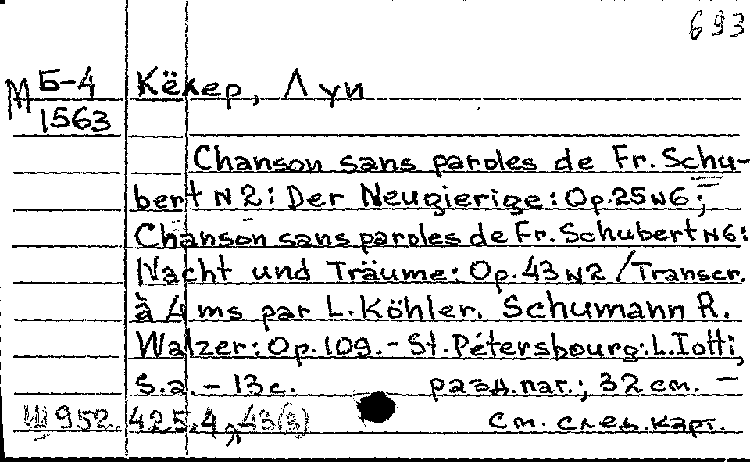 693
М Б-4 Кёлер, Луи
1563
Chanson sans paroles de Fr. Schu-
bert N 2: Der Neugierige: Op. 25 N6;
Chanson sans paroles de Fr. Schubert N6:
Nacht und Träume: Op. 43 N2 / Transcr.
à 4 ms par L. Köhler. Schumann R.
Walzer: Op. 109. - St. Pétersbourg: L. Iotti,
S.a. - 13 с. разд. паг.; 32 см. -
Ш 952.425.4,43(3) См. след. карт.